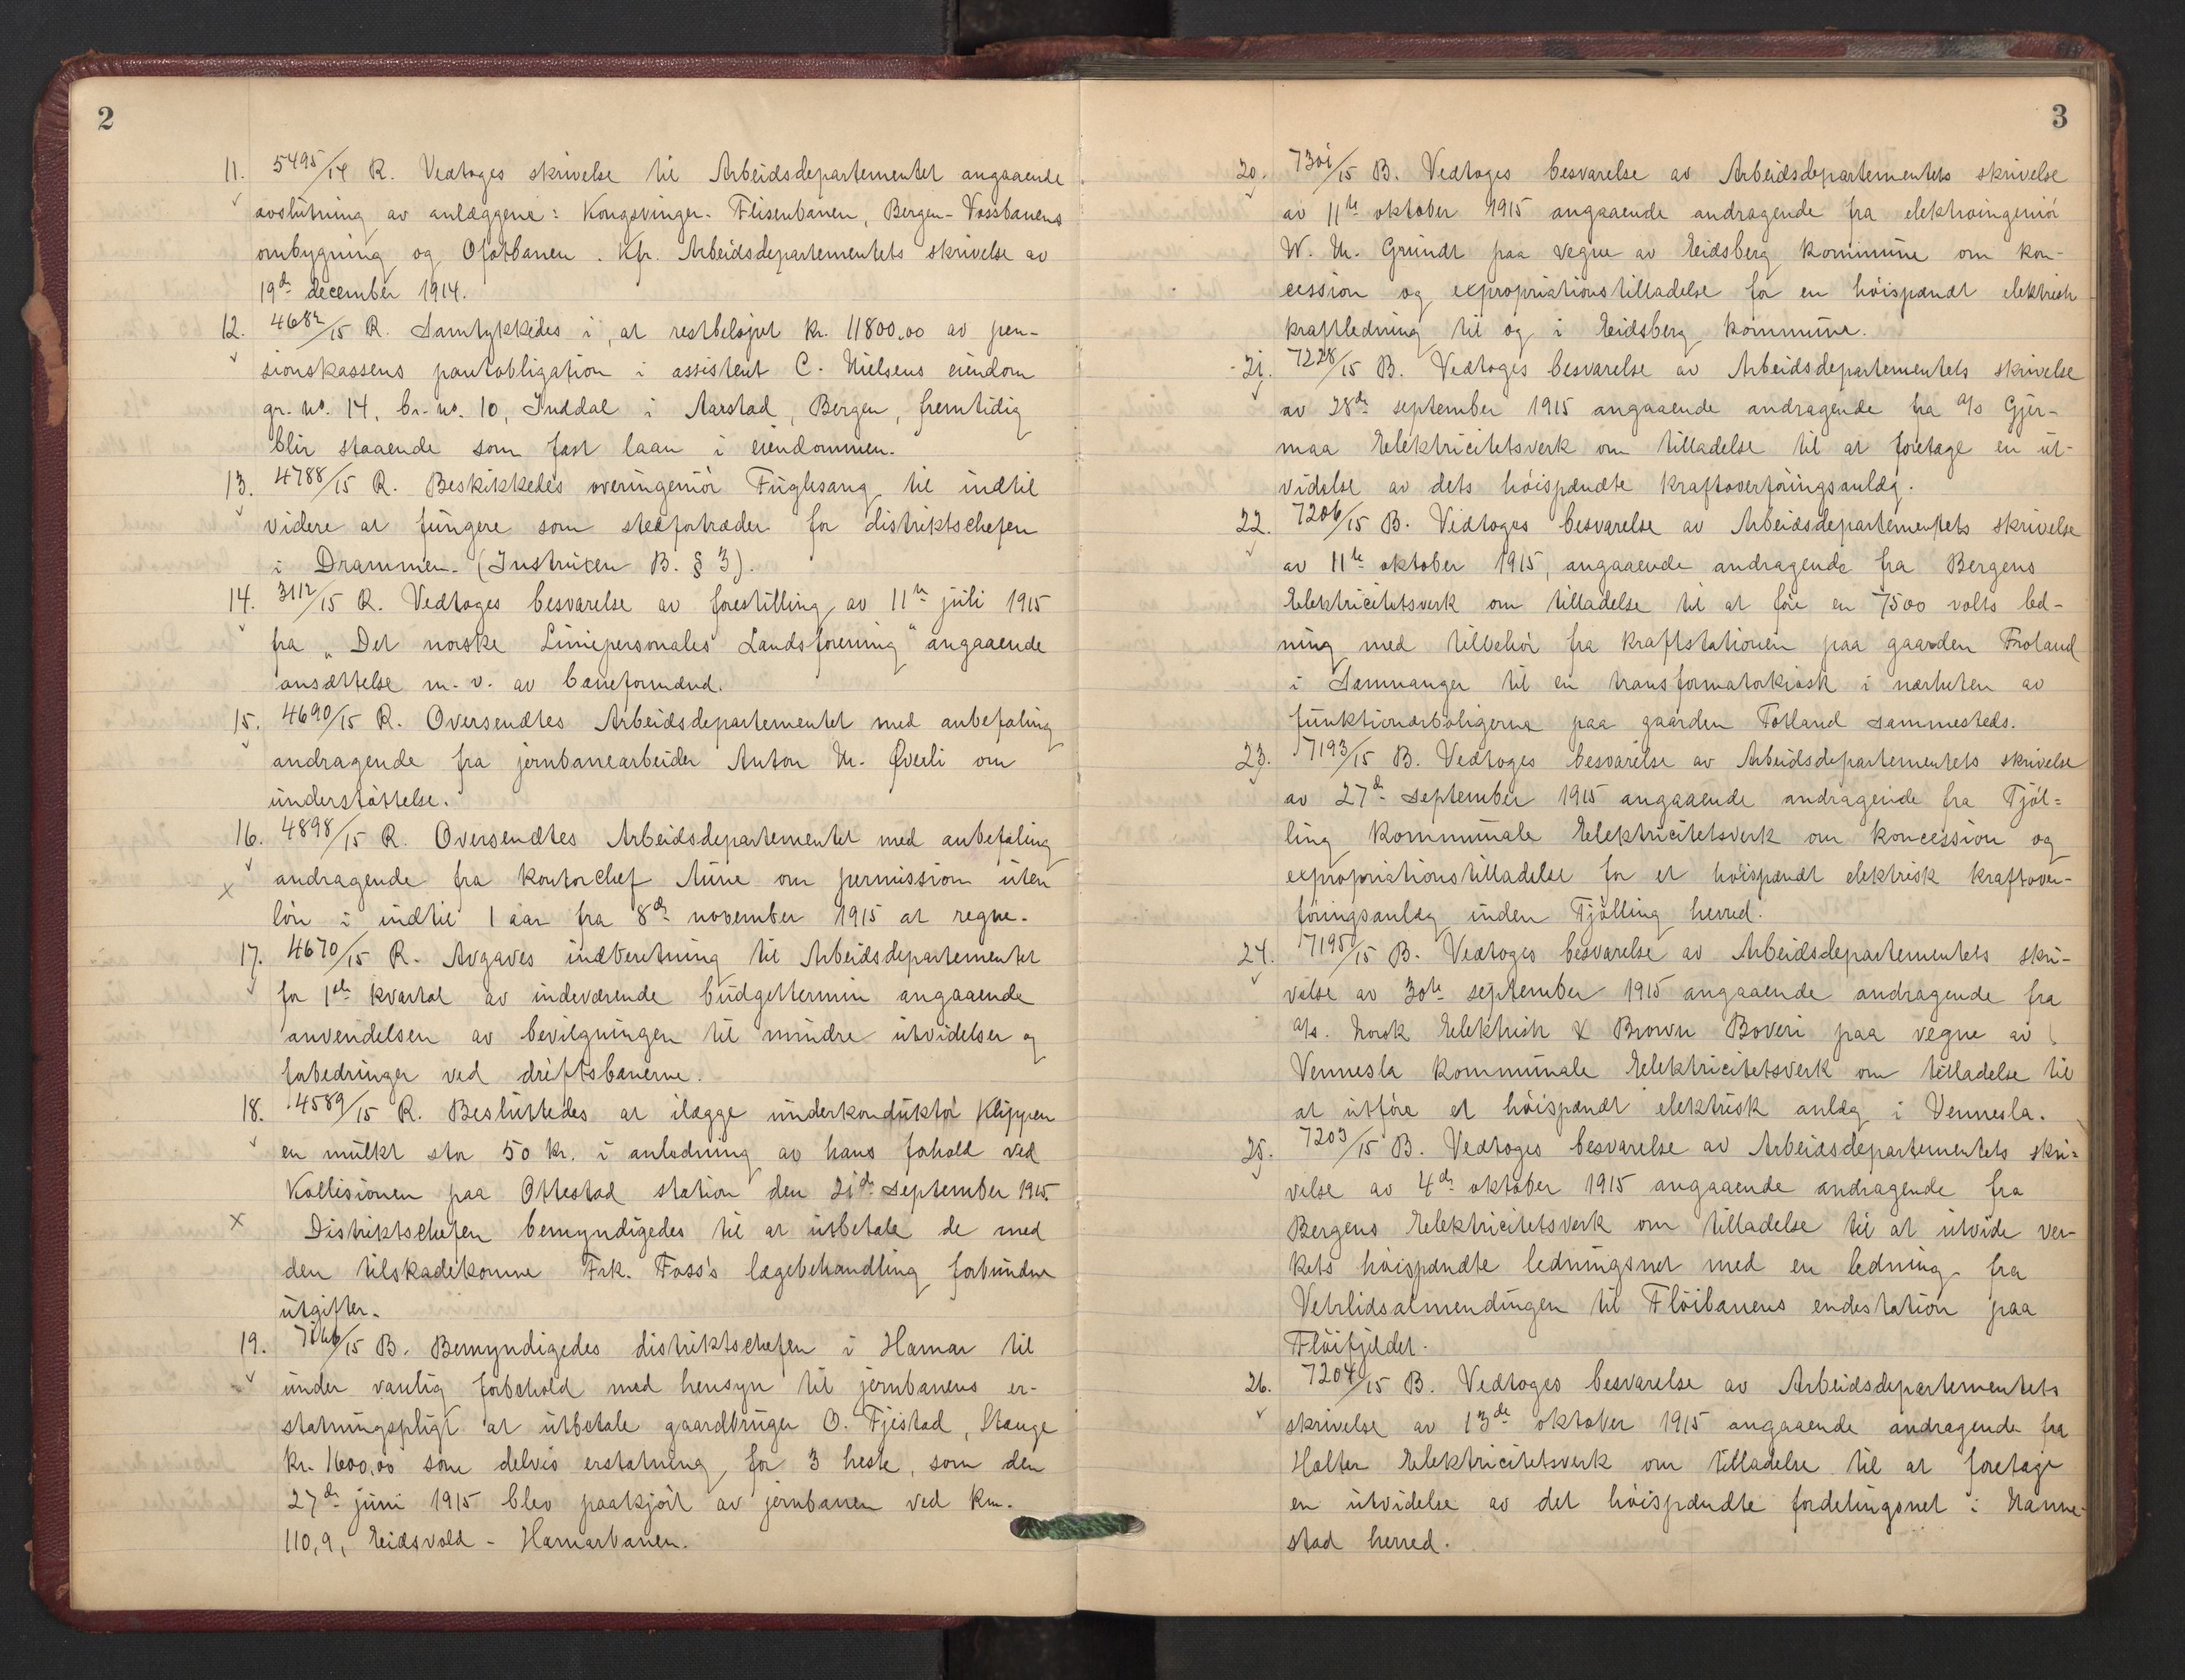 2
11. 5495/14 R. Vedtoges skrivelse til Arbeidsdepartementet angaaende
avslutning av anlæggene: Kongsvinger-Flisenbanen, Bergen-Vossbanens
ombygning og Ofotbanen. Kfr. Arbeidsdepartementets skrivelse av
19de december 1914.
12. 4682/15 R. Samtykkedes i, at restbeløpet kr. 11800,00 av pen-
sionskassens pantobligation i assistent C. Nielsens eiendom
gr. no. 14, br. no. 10, Inddal i Aarstad, Bergen, fremtidig
blir staaende som fast laan i eiendommen.
13. 4788/15 R. Beskikkedes overingeniør Fuglesang til indtil
videre at fungere som stedfortræder for distriktschefen
i Drammen. (Instruxen B. § 3).
14. 3112/15 R. Vedtoges besvarelse av forestilling av 11te juli 1915
fra „Det norske Liniepersonales Landsforening" angaaende
ansættelse m. v. av baneformænd.
15. 4690/15 R. Oversendtes Arbeidsdepartementet med anbefaling
andragende fra jernbanearbeider Anton M. Øverli om
understøttelse.
16. 4898/15 R. Oversendtes Arbeidsdepartementet med anbefaling
andragende fra kontorchef Aune om permission uten
x
løn i indtil 1 aar fra 8de november 1915 at regne.
17. 4670/15 R. Avgaves indberetning til Arbeidsdepartementet
for 1ste kvartal av indeværende budgettermin angaaende
anvendelsen av bevilgningen til mindre utvidelser og
forbedringer ved driftsbanerne.
18. 4589/15 R. Besluttedes at ilægge underkonduktør Klippen
en mulkt stor 50 kr. i anledning av hans forhold ved
Kollisionen paa Ottestad station den 21de september 1915.
x Distriktschefen bemyndigedes til at utbetale de med
den tilskadekomne Frk. Foss's lægebehandling forbundne
utgifter.
19. 7166/15 B. Bemyndigedes distriktschefen i Hamar til
under vanlig forbehold med hensyn til jernbanens er-
statningspligt at utbetale gaardbruger O. Fjestad, Stange
kr. 1600,00 som delvis erstatning for 3 heste, som den
27de juni 1915 blev paakjørt av jernbanen ved km.
110,9, Eidsvold - Hamarbanen.
3
20. 7301/15 B. Vedtoges besvarelse av Arbeidsdepartementets skrivelse
av 11te oktober 1915 angaaende andragende fra elektroingeniør
W. M. Grundt paa vegne av Eidsberg Kommune om kon-
cession og expropriationstilladelse for en høispændt elektrisk
kraftledning til og i Eidsberg kommune.
21. 7228/15 B. Vedtoges besvarelse av Arbeidsdepartementets skrivelse
av 28de september 1915 angaaende andragende fra A/S Gjer-
maa Elektricitetsverk om tilladelse til at foretage en ut-
videlse av dets høispændte kraftoverføringsanlæg.
22. 7206/15 B. Vedtoges besvarelse av Arbeidsdepartementets skrivelse
av 11te oktober 1915, angaaende andragende fra Bergens
Elektricitetsverk om tilladelse til at føre en 7500 volts led-
ning med tilbehør fra kraftstationen paa gaarden Frøland
i Samnanger til en transformatorkiosk i nærheten av
funktionærboligerne paa gaarden Totland sammesteds.
23. 7193/15 B. Vedtoges besvarelse av Arbeidsdepartementets skrivelse
av 27de september 1915 angaaende andragende fra Tjøl-
ling Kommunale Elektricitetsverk om Koncession og
expropriationstilladelse for et høispændt elektrisk kraftover-
føringsanlæg inden Tjølling herred.
24. 7195/15 B. Vedtoges besvarelse av Arbeidsdepartementets skri-
velse av 30te september 1915 angaaende andragende fra
A/S. Norsk Elektrisk & Brown Boveri paa vegne av
Vennesla Kommunale Elektricitetsverk om tilladelse til
at utføre et høispændt elektrisk anlæg i Vennesla.
25. 7203/15 B. Vedtoges besvarelse av Arbeidsdepartementets skri-
velse av 4de oktober 1915 angaaende andragende fra
Bergens Elektricitetsverk om tilladelse til at utvide ver-
kets høispændte ledningsnet med en ledning fra
Vetrlidsalmendingen til Fløibanens endestation paa
Fløifjeldet.
26. 7204/15 B. Vedtoges besvarelse av Arbeidsdepartementets
skrivelse av 13de oktober 1915 angaaende andragende fra
Holter Elektricitetsverk om tilladelse til at foretage
en utvidelse av det høispændte fordelingsnet i Nanne-
stad herred.